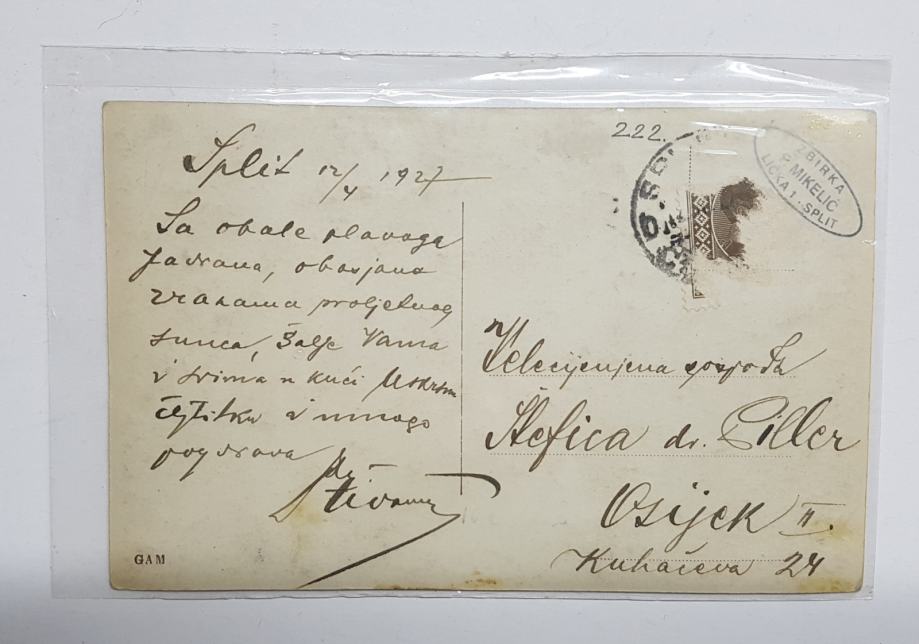 Split 12/4 1927
Sa obale plavoga
Jadrana, obasjana
zrakama proljetnog
sunca, šalje Vama
i svima u kući Uskrsnu
čestitku i mnogo
pozdrava
GAM
222.
ZBIRKA
P. MIKELIĆ
LIČKA 1 · SPLIT
Velecijenjena gospođa
Štefica dr. Piller
Osijek II.
Kuhačeva 24